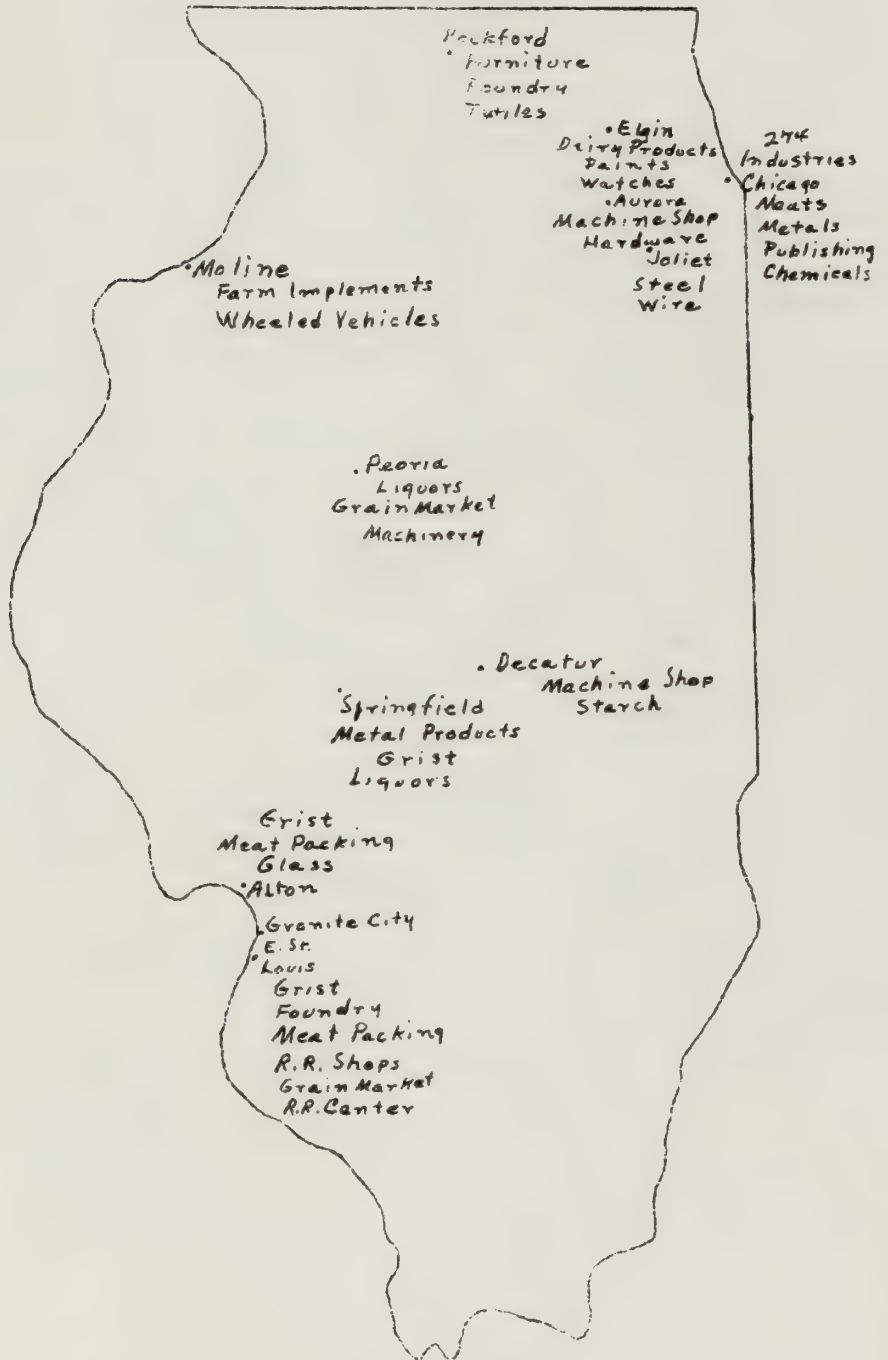 Rockford
Furniture
Foundry
Elgin
Dairy Products
Paints
Watches
Aurora
Machine Shop
Hardware
Joliet
Steel
Wire
274
Industries
Chicago
Meats
Metals
Publishing
Chemicals
Moline
Farm Implements
Wheeled Vehicles
Peoria
Liquors
Grain Market
Machinery
Decatur
Machine Shop
Starch
Springfield
Metal Products
Grist
Liquors
Grist
Meat Packing
Glass
Alton
Granite City
E. St.
Louis
Grist
Foundry
Meat Packing
R.R. Shops
Grain Market
R.R. Center